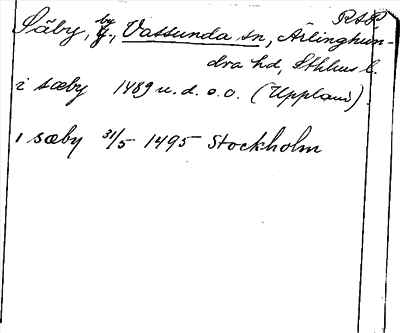 RSP
Säby, by, Vassunda sn, Ärlinghun-
dra hd, Sthlms l.
i sæby 1489 u.d. o.o. (Uppland).
i sæby 31/5 1495 Stockholm